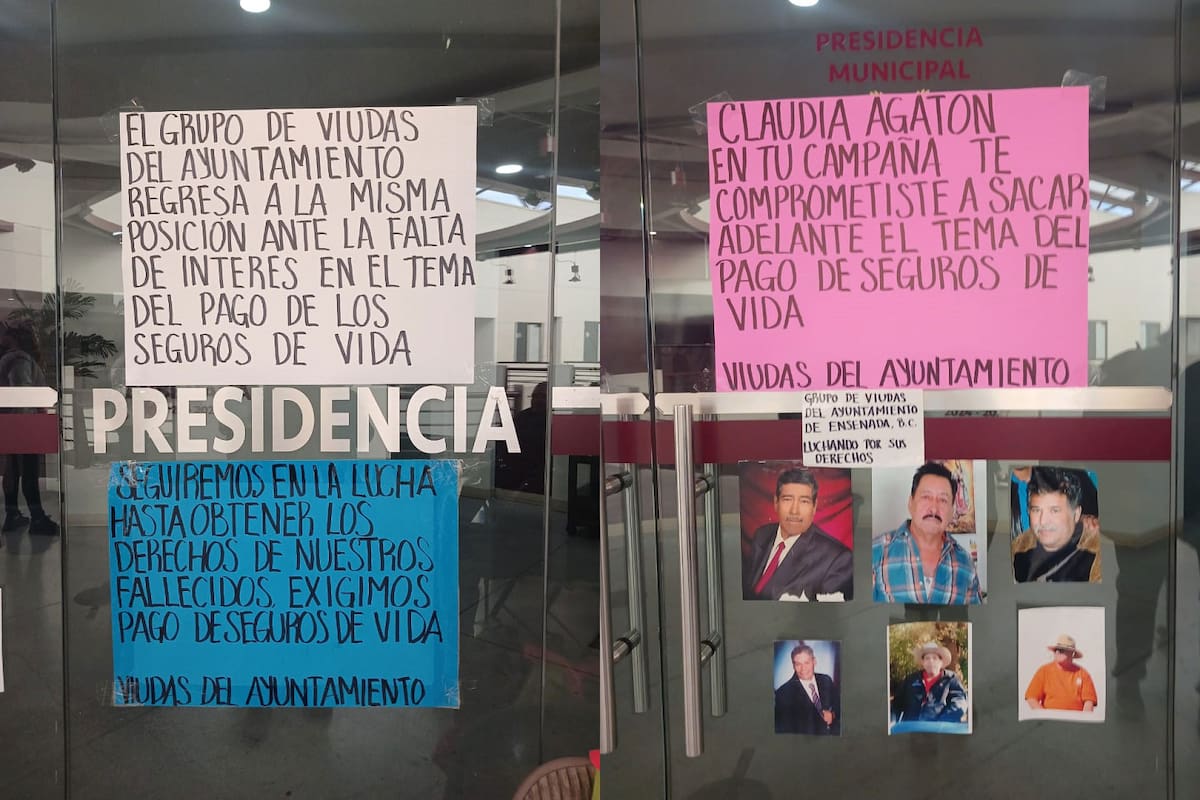 EL GRUPO DE VIUDAS
DEL AYUNTAMIENTO
REGRESA A LA MISMA
POSICIÓN ANTE LA FALTA
DE INTERES EN EL TEMA
DEL PAGO DE LOS
SEGUROS DE VIDA
PRESIDENCIA
SEGUIREMOS EN LA LUCHA
HASTA OBTENER LOS
DERECHOS DE NUESTROS
FALLECIDOS, EXIGIMOS
PAGO DE SEGUROS DE VIDA
VIUDAS DEL AYUNTAMIENTO
PRESIDENCIA
MUNICIPAL
CLAUDIA AGATON
EN TU CAMPAÑA TE
COMPROMETISTE A SACAR
ADELANTE EL TEMA DEL
PAGO DE SEGUROS DE
VIDA
VIUDAS DEL AYUNTAMIENTO
GRUPO DE VIUDAS
DEL AYUNTAMIENTO
DE ENSENADA, B.C.
LUCHANDO POR SUS
DERECHOS